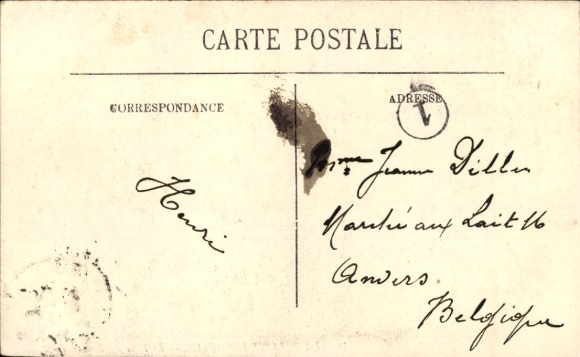 CARTE POSTALE
CORRESPONDANCE
ADRESSE
1
Henri
Mme Jeanne Dillen
Marché aux Lait 16
Anvers
Belgique